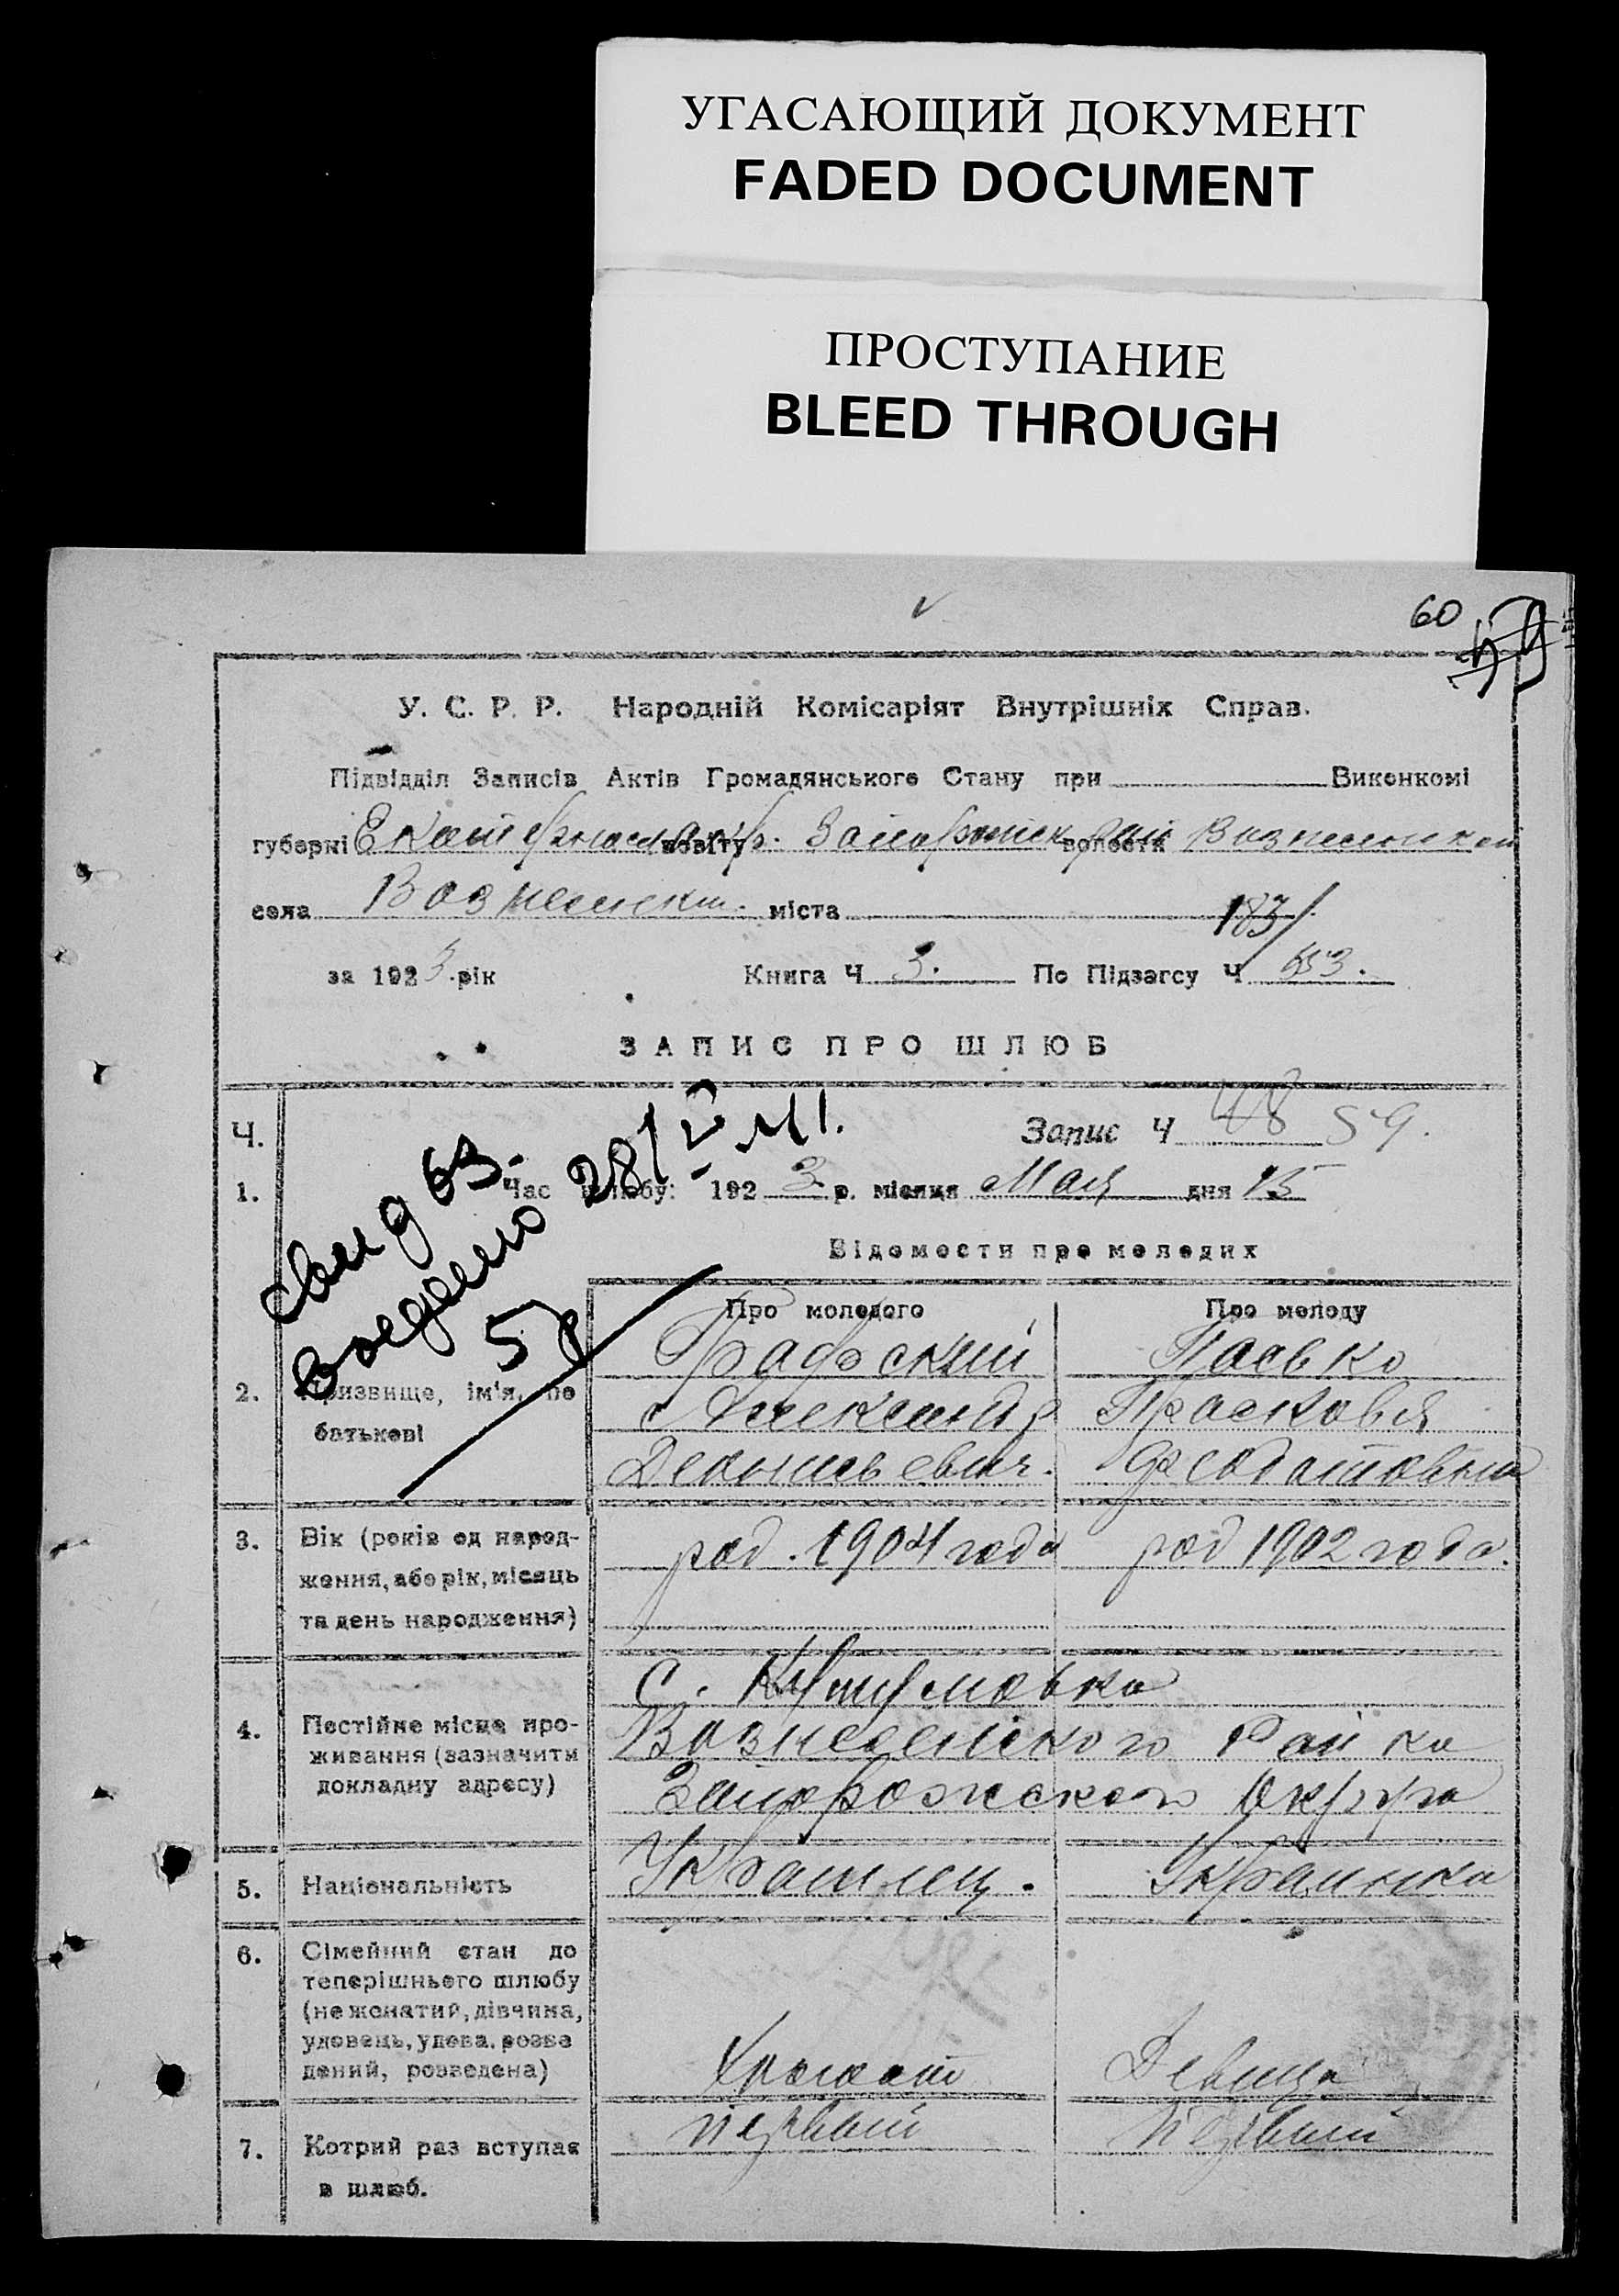 УГАСАЮЩИЙ ДОКУМЕНТ
FADED DOCUMENT
ПРОСТУПАНИЕ
BLEED THROUGH
60
У. С. Р. Р. Народній Комісаріят Внутрішніх Справ.
Підвідділ Записів Актів Громадянського Стану при Виконкомі
губерні повіту волости
села Вознесенки міста
183/
за 1923 рік Книга Ч 3. По Підзагсу Ч 653.
ЗАПИС ПРО ШЛЮБ
Ч. Запис Ч 48 59.
1. Час шлюбу: 1923 р. місяця Мая дня 15
Відомости про молодих
Про молодого Про молоду
2. Призвище, ім'я, по батькові
Графский Пасько
Александр Прасковья
Федотовна
3. Вік (років од народ-
ження, або рік, місяць
та день народження)
род. 1904 года род 1902 года.
4. Постійне місце про-
живання (зазначити
докладну адресу)
С. Кушумовка
Вознесенского Рай ка
Запорожского Округа
5. Національність Украинец. Украинка
6. Сімейний стан до
теперішнього шлюбу
(не жонатий, дівчина,
удовець, удова, розве
дений, розведена)
Холост Девица
7. Котрий раз вступає
в шлюб.
первый первый